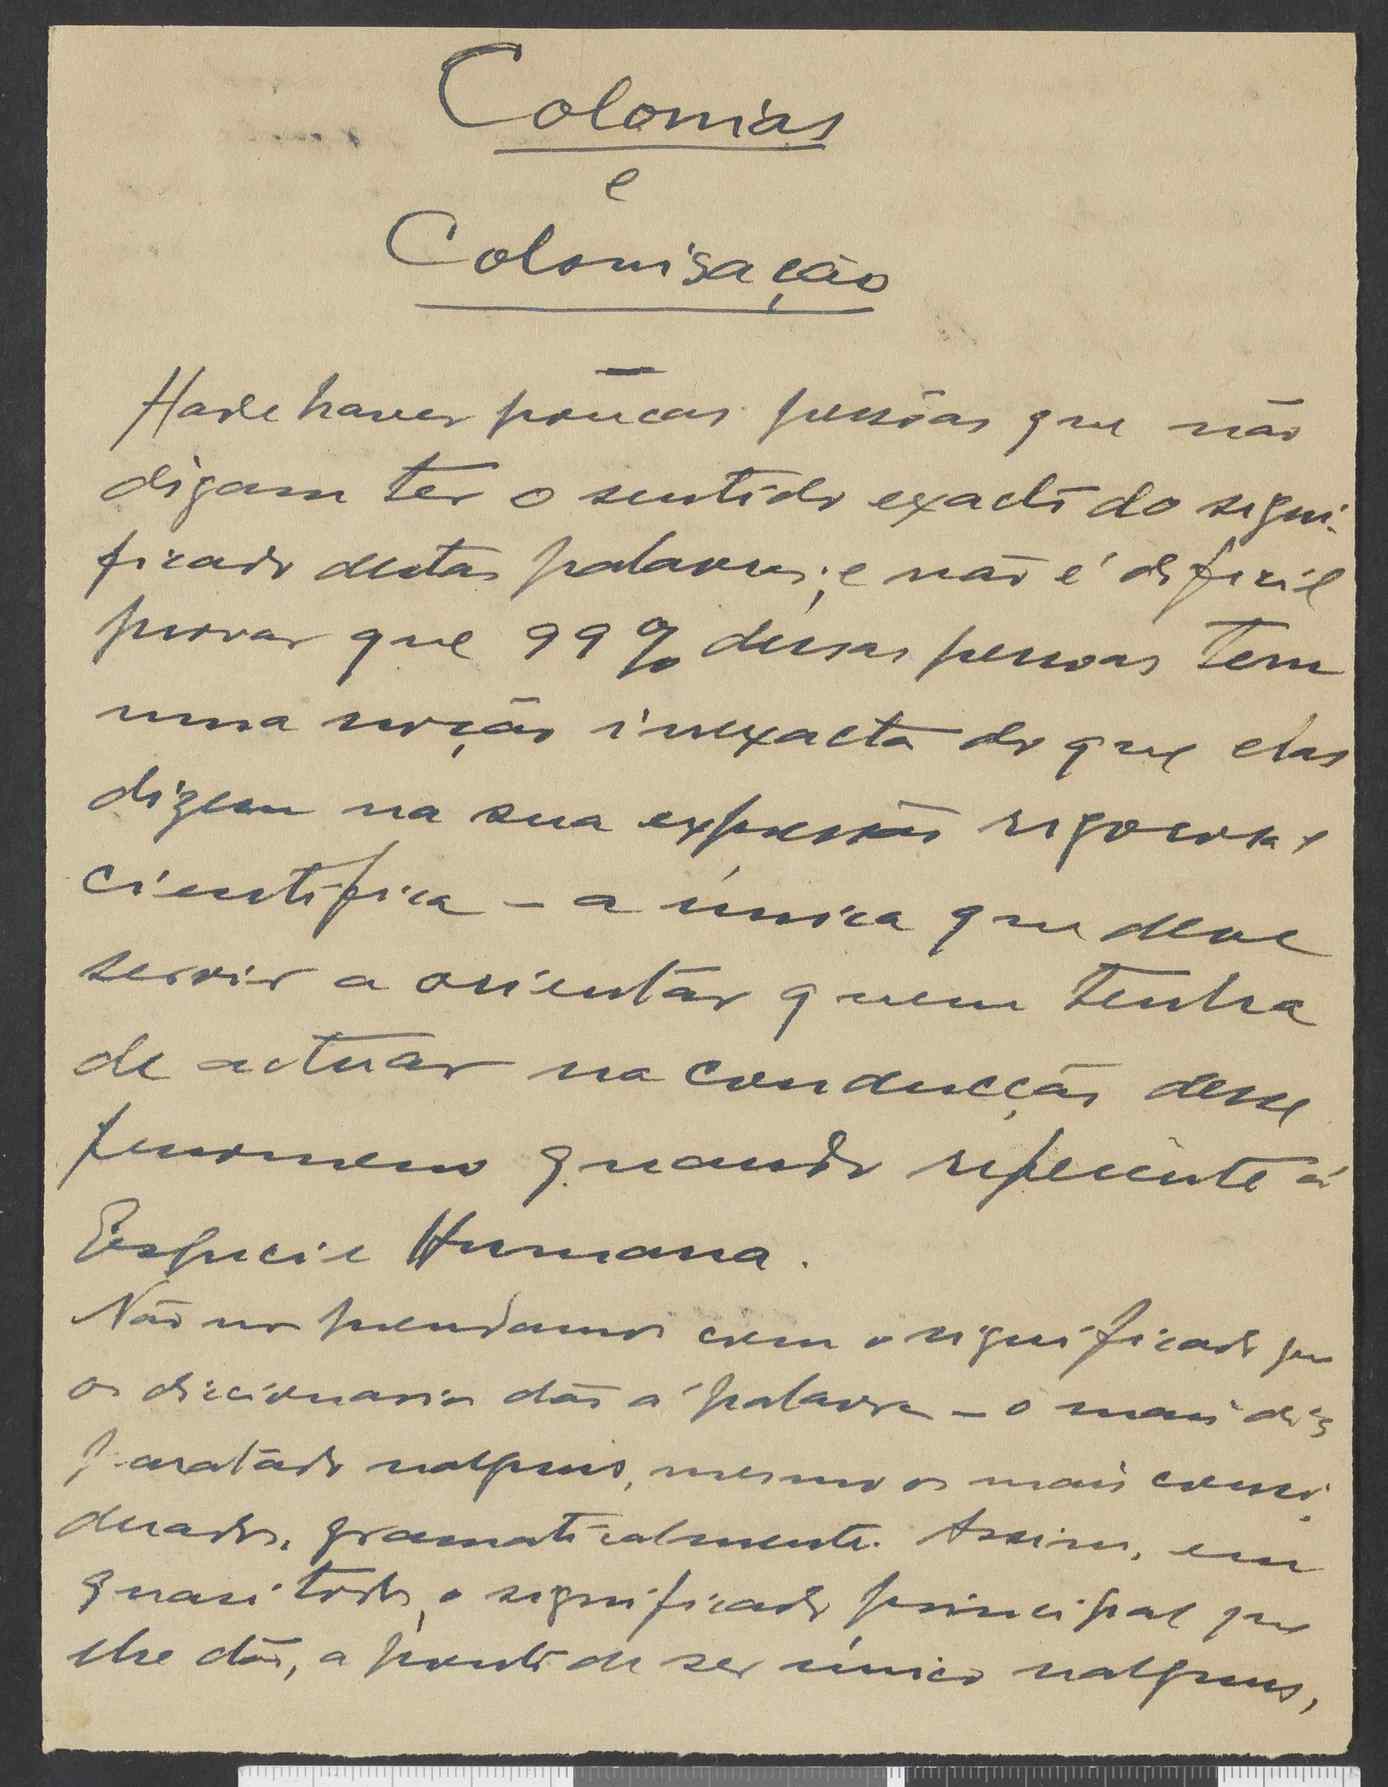 Colonias
e
Colonisação
Hade haver poucas pessôas que não
digam ter o sentido exacto do signi-
ficado destas palavras; e não é dificil
provar que 99% dessas pessoas tem
uma noção inexacta do que elas
dizem na sua expressão rigorosa e
cientifica – a única que deve
servir a orientar quem tenha
de actuar na conducção desse
fenomeno quando referente á
Especie Humana.
Não nos prendamos com o significado que
os diccionarios dão á palavra – o mais dis
paratado nalguns, mesmo os mais consi-
derados, gramaticalmente. Assim, em
quasi todos, o significado principal que
lhe dão, a ponto de ser único nalguns,